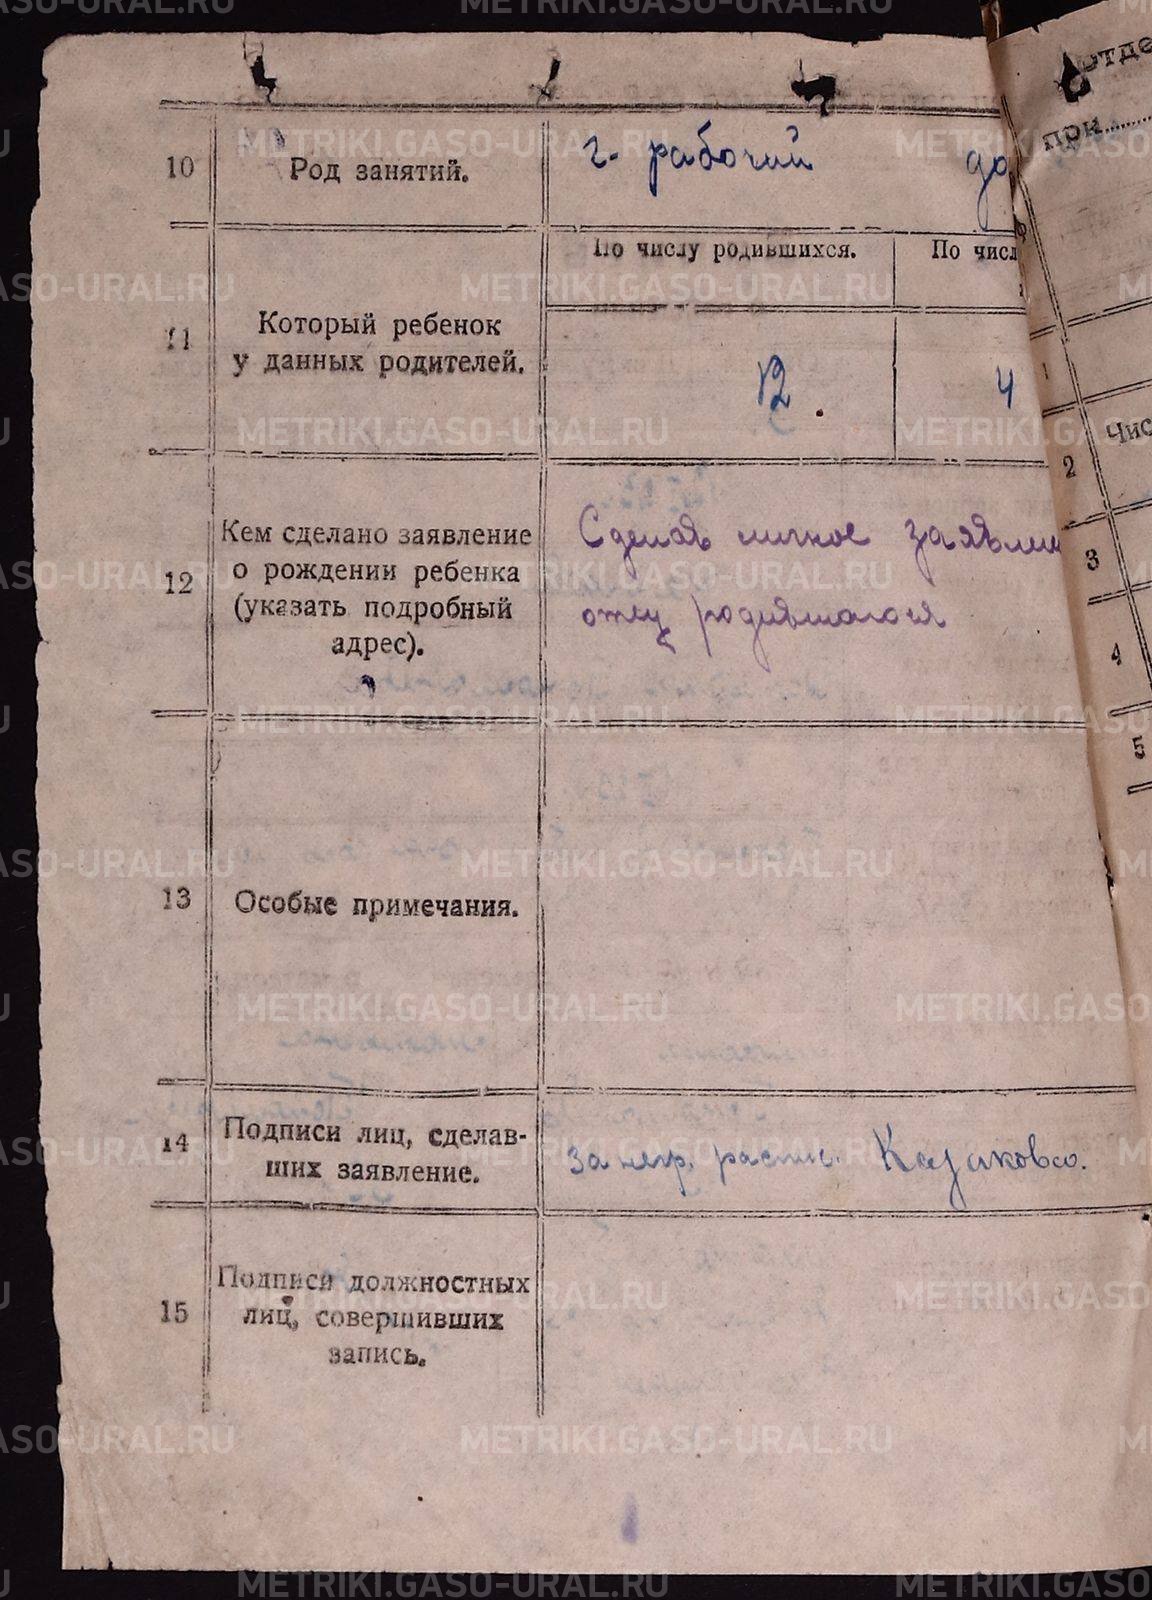 10
Род занятий.
г. рабочий
до
11
Который ребенок
у данных родителей.
По числу родившихся.
По числ
12
4
12
Кем сделано заявление
о рождении ребенка
(указать подробный
адрес).
Сделав личное заявлен
отец родившагося
13
Особые примечания.
14
Подписи лиц, сделав-
ших заявление.
за негр. распис. Казаково.
15
Подписи должностных
лиц, совершивших
запись.
отде
при
1
2
Чис
3
4
5
METRIKI.GASO-URAL.RU